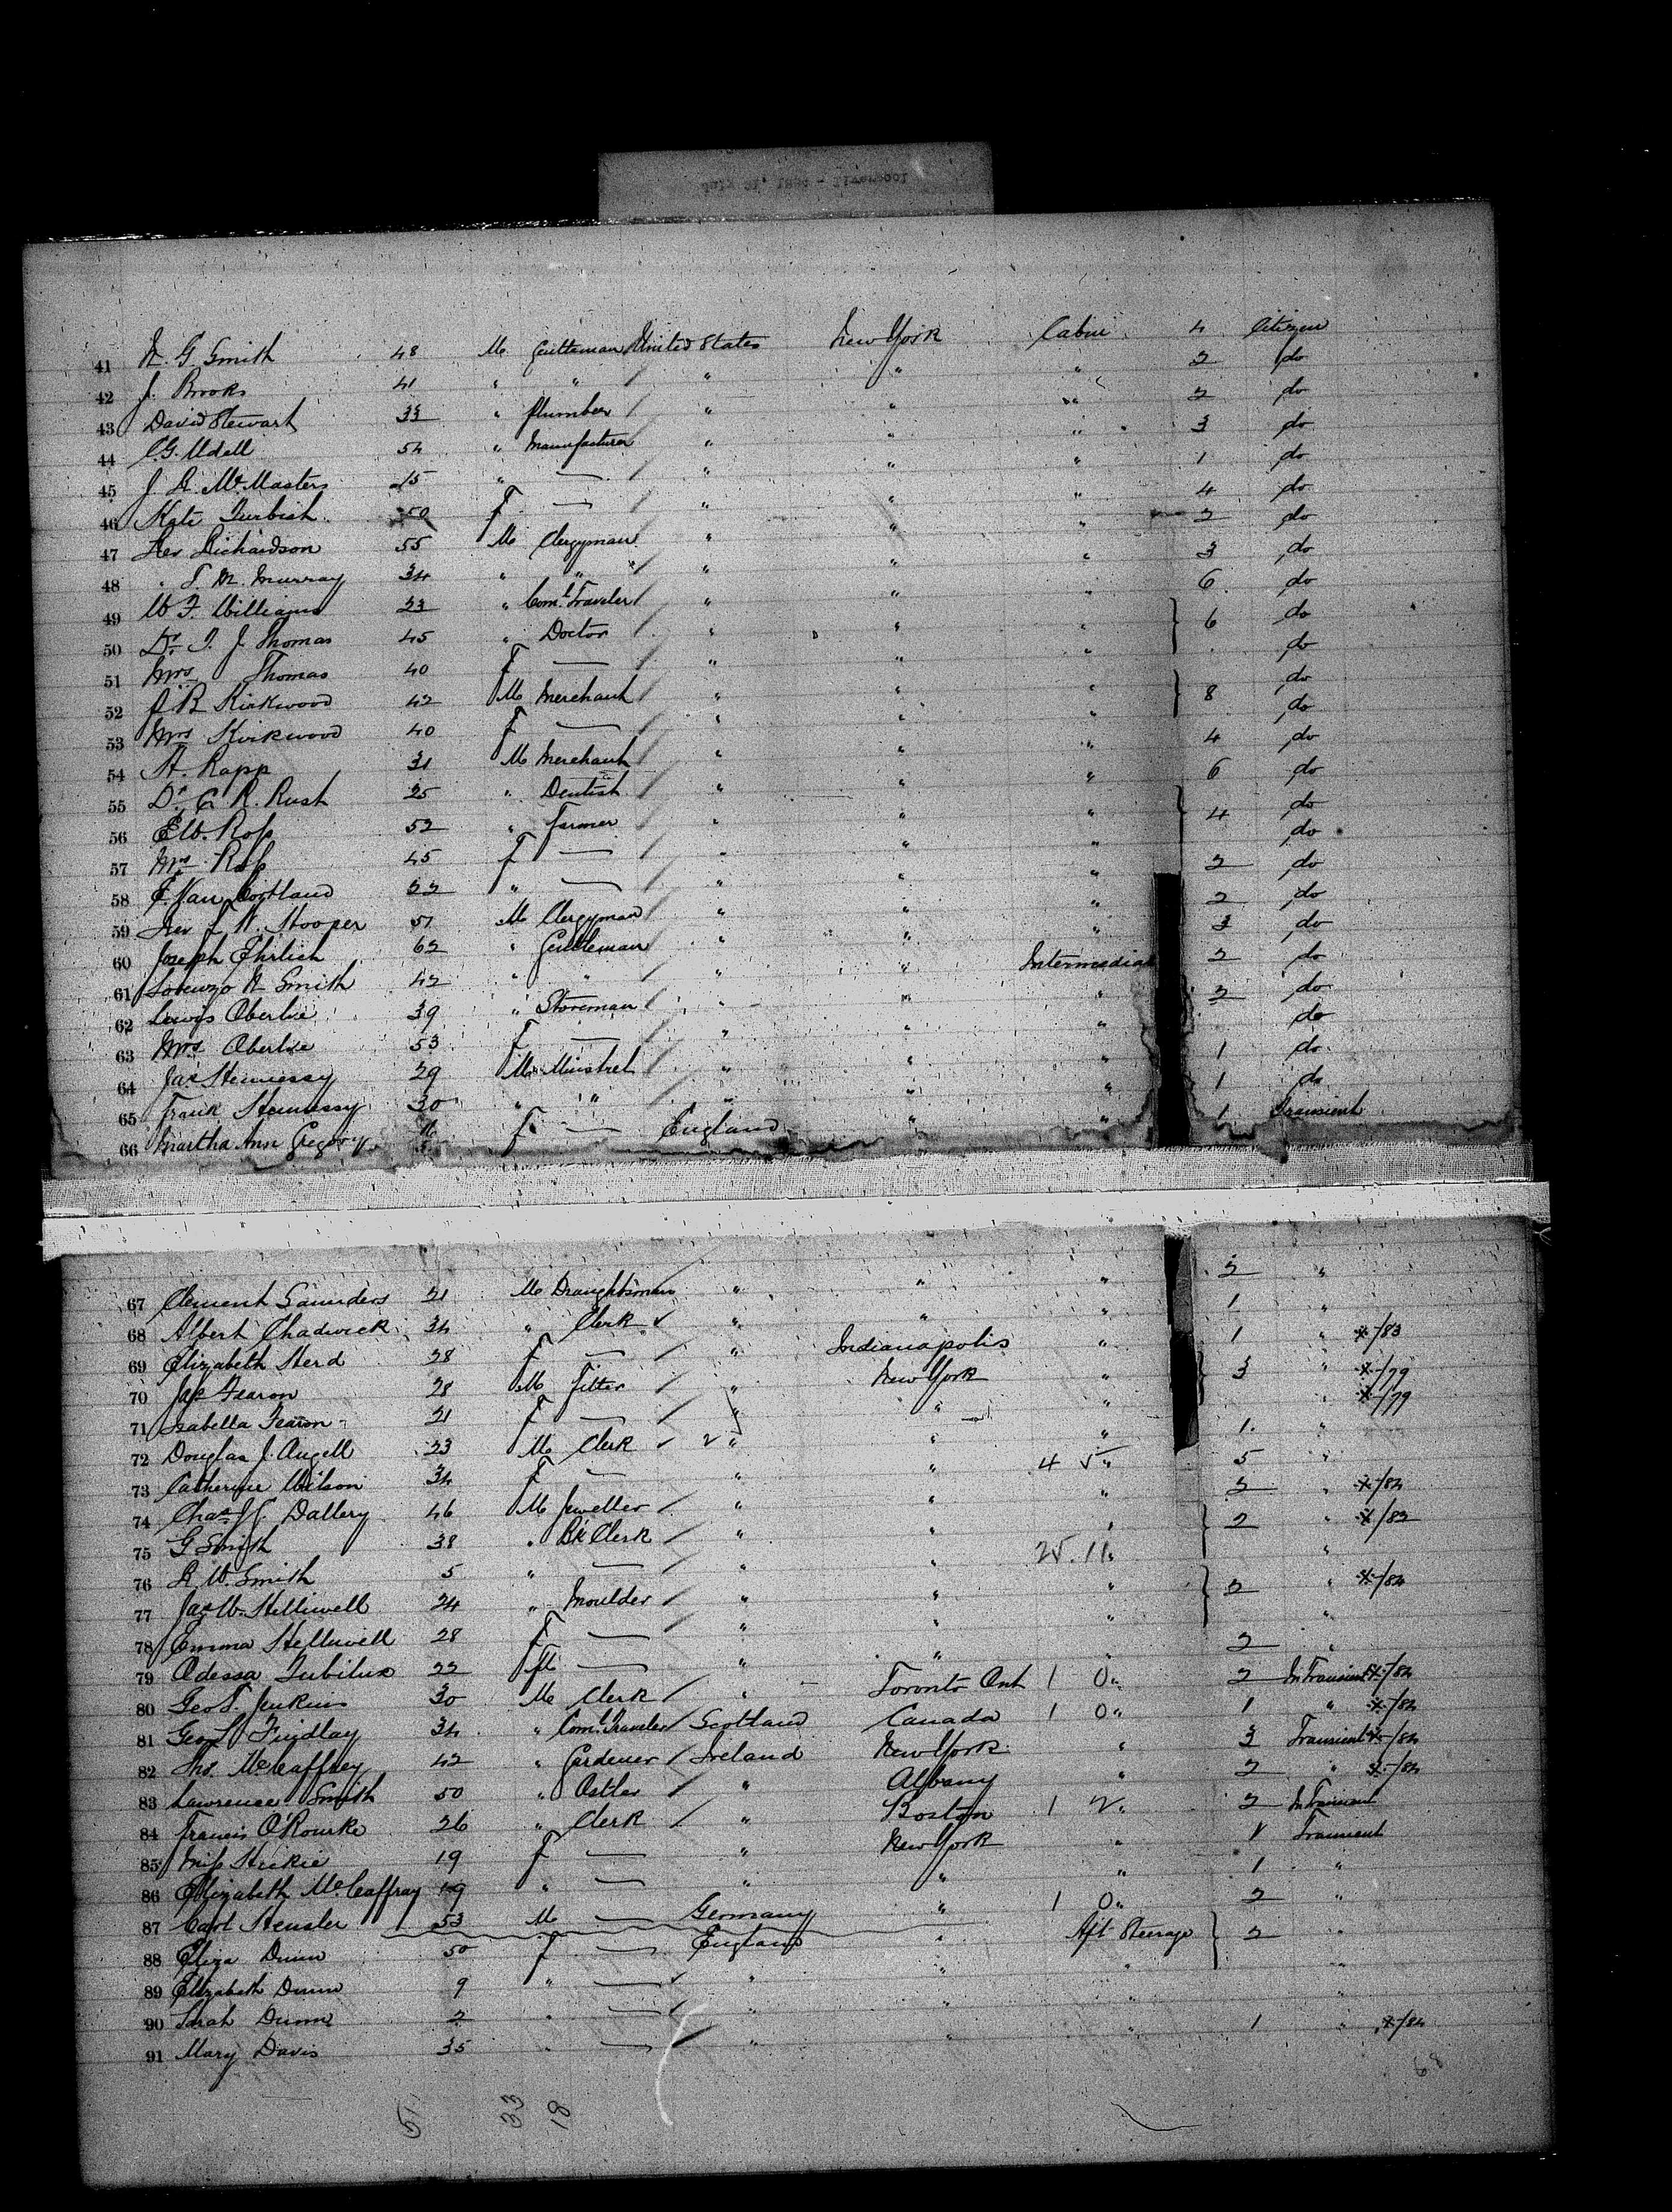 41 G. Smith 48 M Gentleman United States New York Cabin 4 Citizen
42 J. Brooks 41 " " " " " 2 do
43 David Stewart 33 " Plumber " " " 2 do
44 C. G. Udall 54 " Manufacturer " " " 3 do
45 J. McMasters 15 " — " " " 1 do
46 Kate Furbish 50 F — " " " 4 do
47 Rev Richardson 55 M Clergyman " " " 2 do
48 " Murray 34 " " " " " 3 do
49 W. F. Williams 23 " Coml. Traveler " " " 6 do
50 Dr. T. J. Thomas 45 " Doctor " " " 6 do
51 Mrs Thomas 40 F — " " " do
52 Kirkwood 42 M Merchant " " " 8 do
53 Mrs Kirkwood 40 F — " " " do
54 A. Rapp 31 M Merchant " " " 4 do
55 Dr. C. R. Rush 25 " Dentist " " " 6 do
56 E. W. Ross 52 " Farmer " " " 4 do
57 Mrs. Ross 45 F — " " " do
58 E. Van Cortland 22 " — " " " 2 do
59 Rev L. H. Hooper 51 M Clergyman " " " 2 do
60 Joseph Ehrlich 62 " Gentleman " " " 3 do
61 Lorenzo Smith 42 " " " " Intermediate 2 do
62 Lewis Oberlie 39 " Storeman " " " 2 do
63 Mrs. Oberlie 53 F — " " " do
64 Jas Hennessy 29 M Minstrel " " " 1 do
65 Frank Hennessy 30 " " " " " 1 do
66 Martha Ann Gregory 16 F — England " " 1 Transient
67 Clement Saunders 21 M Draughtsman " " " 2 "
68 Albert Chadwick 34 " Clerk " " " 1 "
69 Elizabeth Herd 28 F — " Indianapolis " 1 " /83
70 Jas Fearon 28 M Fitter " New York " 3 " /79
71 Isabella Fearon 21 F — " " " " /79
72 Douglas J. Angell 23 M Clerk " " " 1 "
73 Catherine Wilson 34 F — " " 4 5 " 5 "
74 Chas Dallery 46 M Jeweller " " " 2 " /82
75 G Smith 38 " Bk Clerk " " " 2 " /82
76 W. Smith 5 " — " " 25. 11 "
77 Jas W. Helliwell 24 " Moulder " " " 2 " /82
78 Emma Helliwell 28 F — " " " "
79 Odessa 22 M — " " " 2 "
80 Geo Jenkins 30 M Clerk " Toronto Ont 1 0 " 2 In Transient /82
81 Geo Findlay 34 " Coml. Traveler Scotland Canada 1 0 " 1 " /82
82 Thos. McCaffrey 42 " Gardener Ireland New York " 3 Transient /82
83 Lawrence Smith 50 " Ostler " Albany " 2 " /82
84 Francis O'Rourke 26 " Clerk " Boston 1 2 " 2 In Transient
85 Miss Hickie 19 F — " New York " 1 Transient
86 Elizabeth McCaffray 19 " — " " " 1 "
87 Carl Hensler 53 M — Germany " 1 0 " 2 "
88 Eliza Dunn 50 F — England " Aft Steerage 2 "
89 Elizabeth Dunn 9 " — " " " "
90 Sarah Dunn 2 " — " " " "
91 Mary Davis 35 " — " " " 1 " /82
51 33 18 68